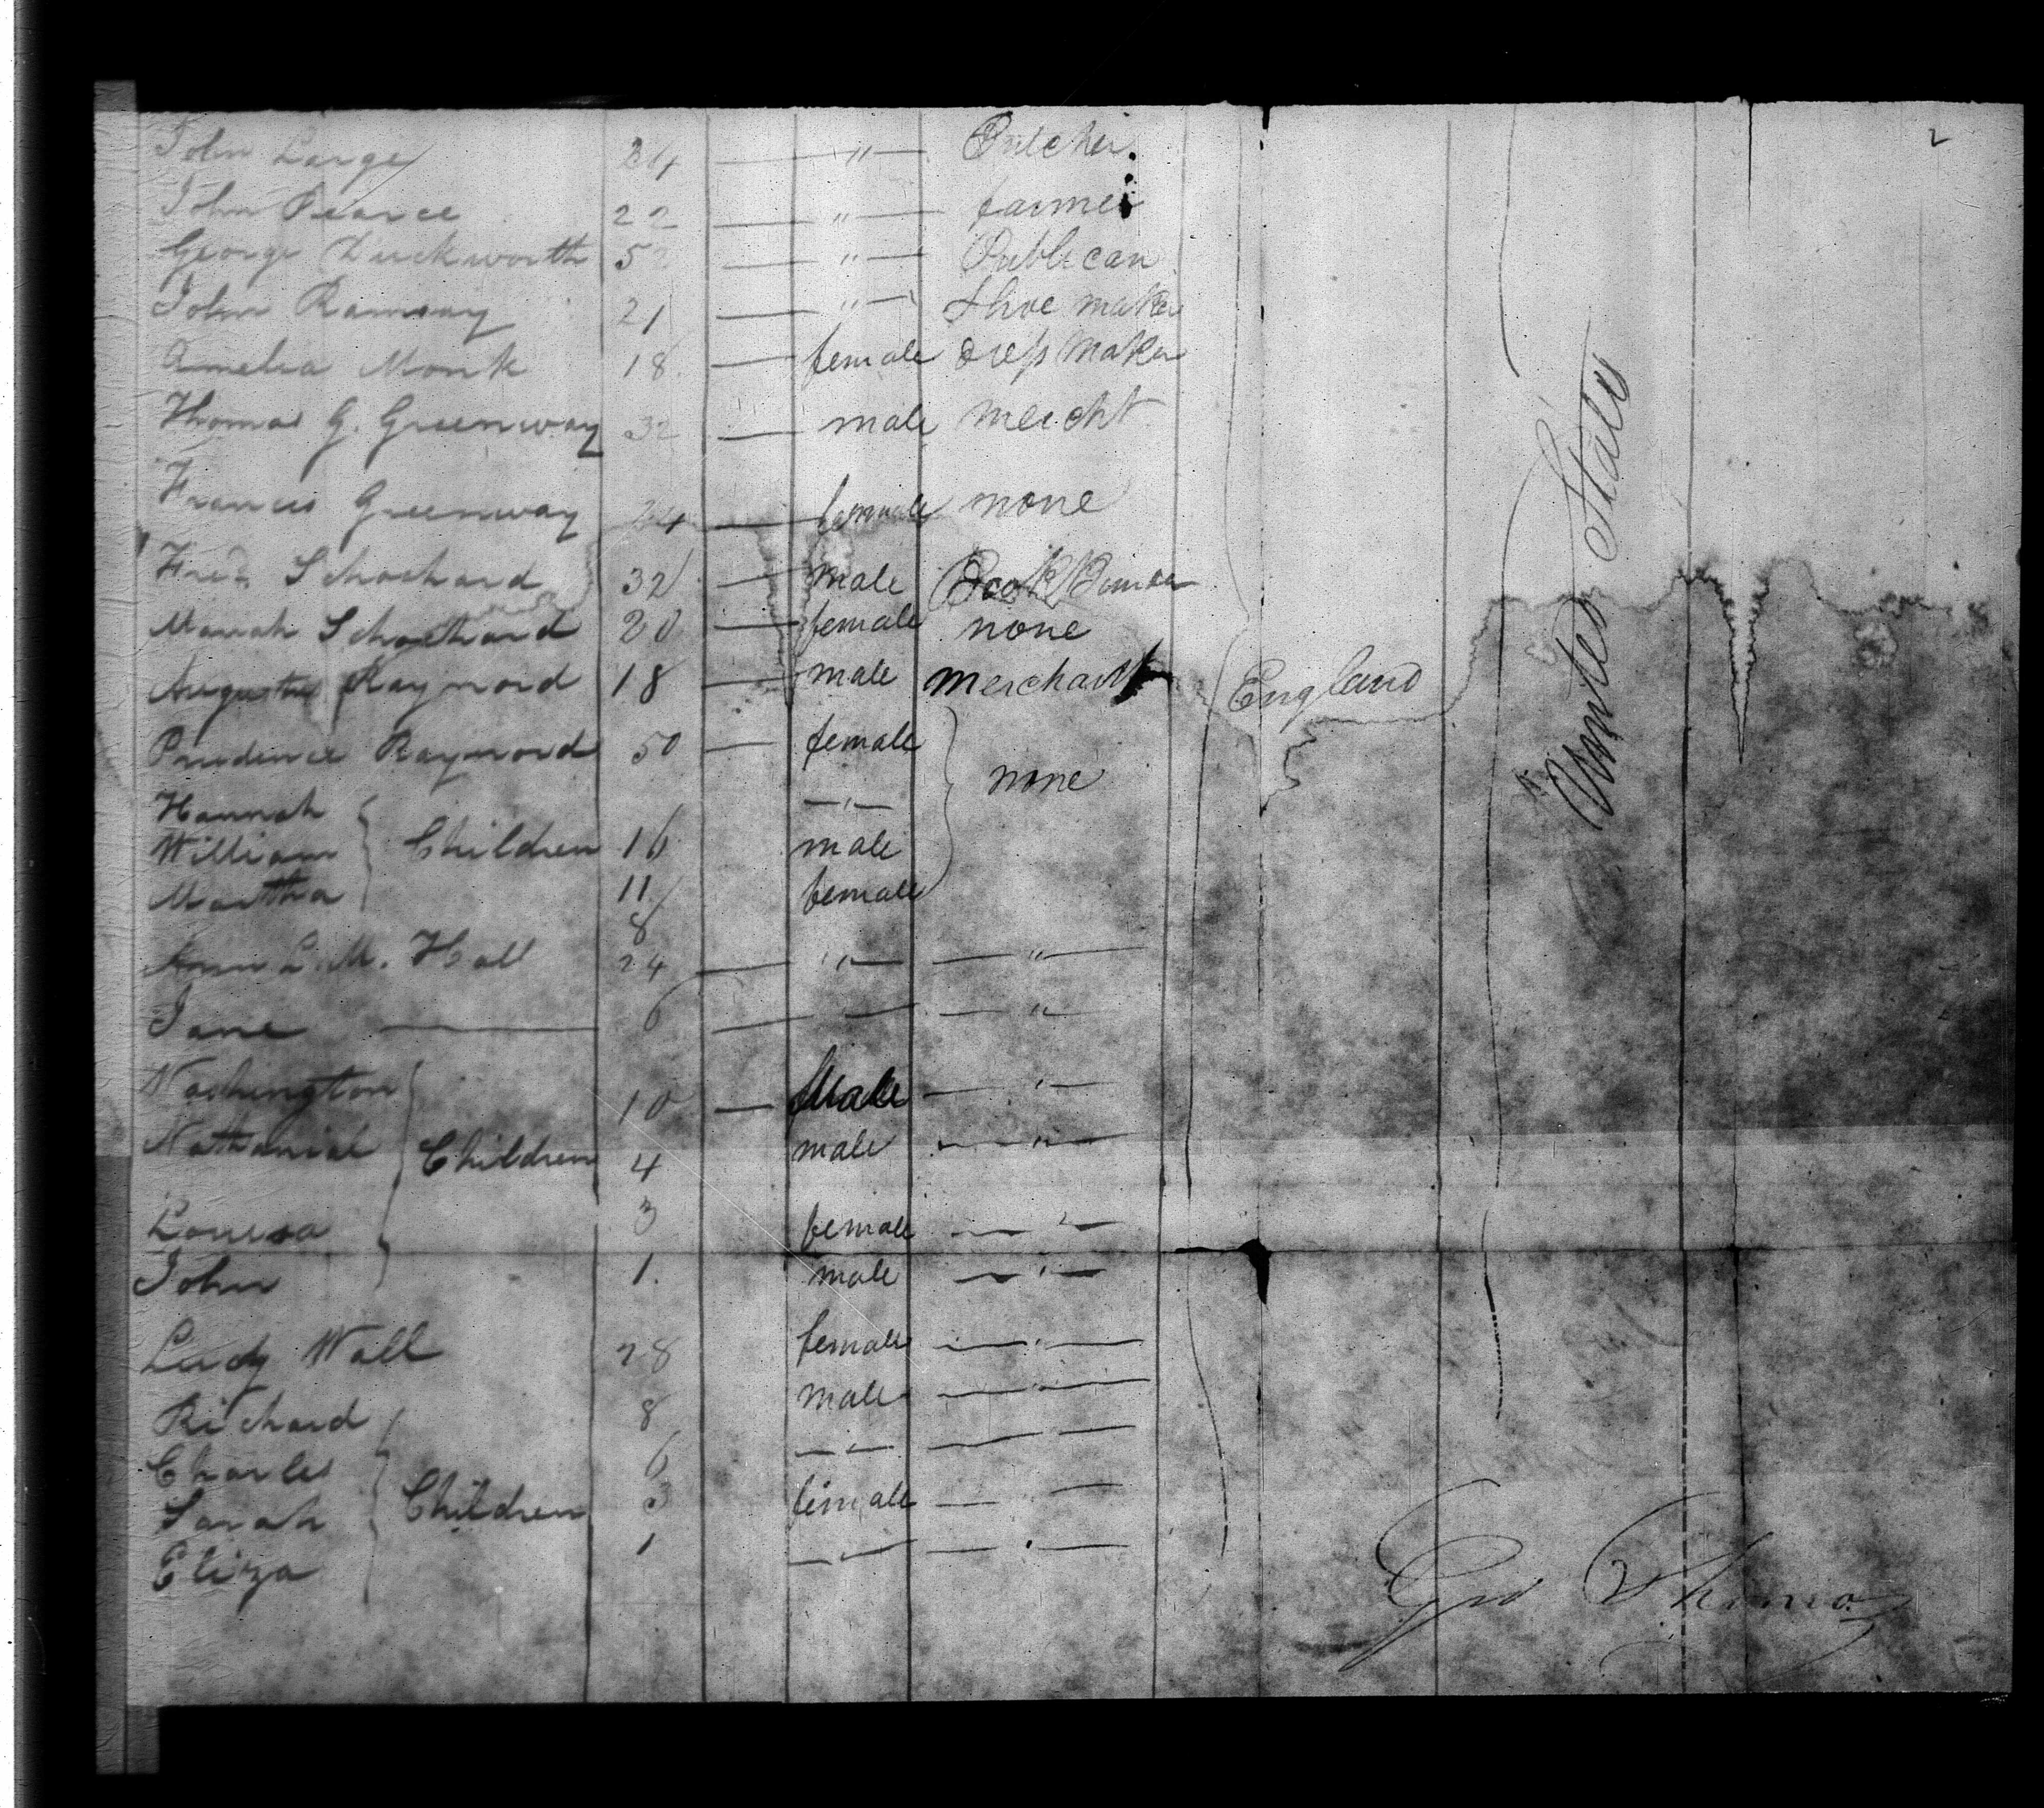 2
John Large 24 — " — Butcher
John Pearce 22 — " — farmer
George Duckworth 52 — " — Publican
John Ramsay 21 — " — Shoe maker
Amelia Monk 18 — female dress maker
Thomas G. Greenway 32 — male mercht
Frances Greenway 24 — female none
Fred Schochard 32 — male Book Binder
Mariah Schochard 20 — female none
Raymond 18 — male merchant England
Prudence Raymond 50 — female
none
Hannah — " —
William Children 16 male
Martha 11 female
8
Ann L. M. Hall 24 — " — — " —
Jane — 6 — — — " —
Washington 10 — Male — " —
Nathanial Children 4 male — " —
Louisa 3 female — " —
John 1. male — " —
Lucy Wall 28 female — " —
Richard 8 male — " —
Charles 6 — " — — " —
Sarah Children 3 female — —
Eliza 1 — " — — " —
United States
Geo Thomas